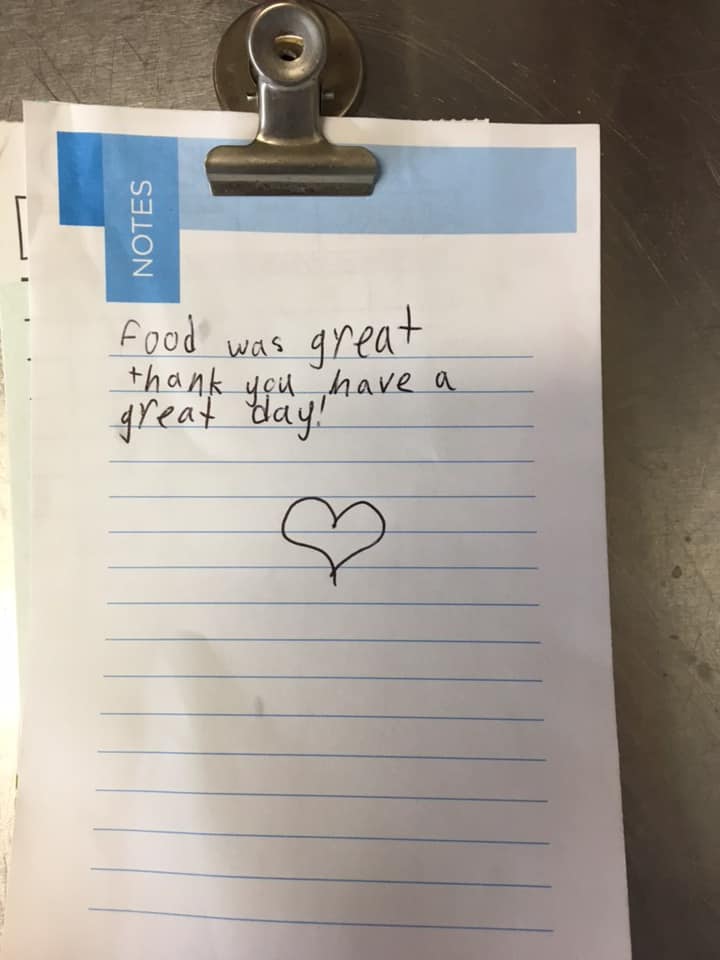 NOTES
Food was great
thank you have a
great day!